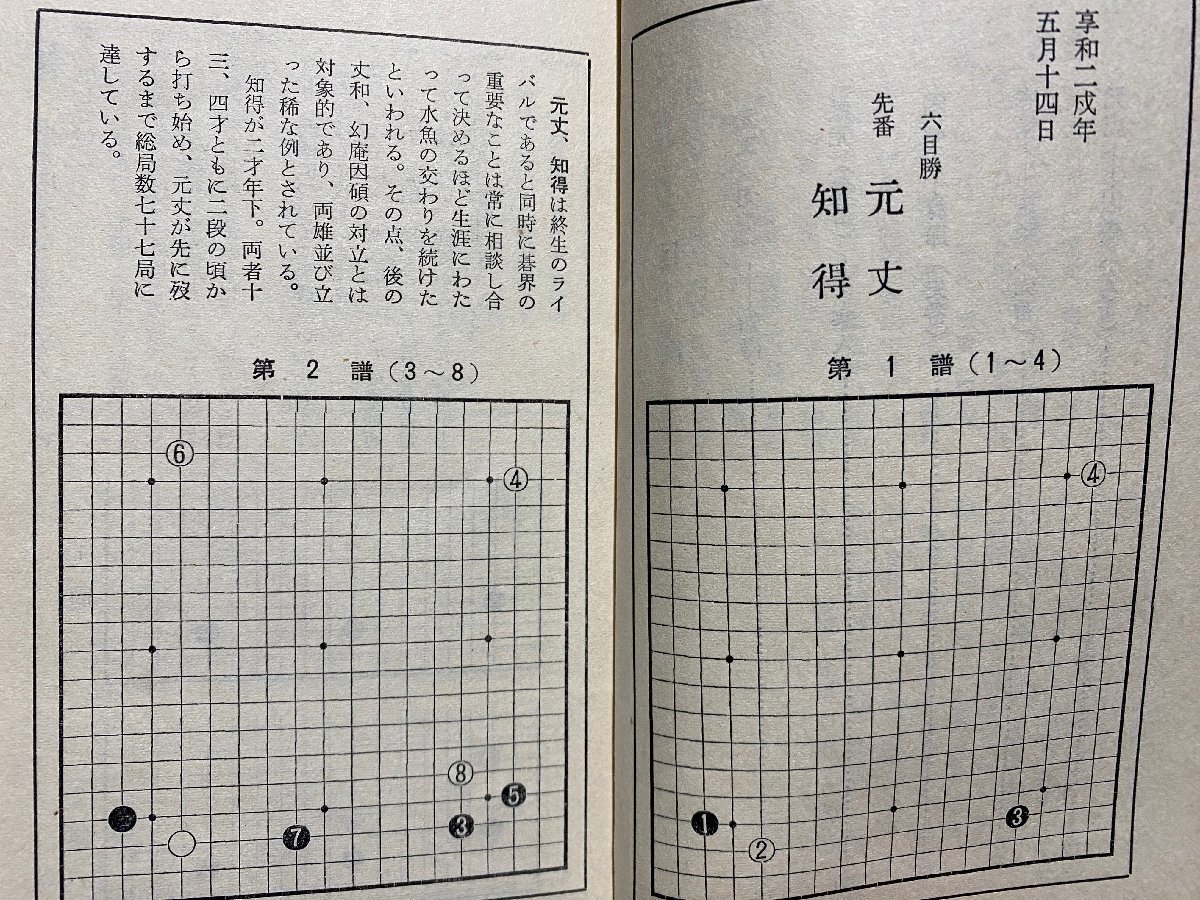 享和二戌年
五月十四日
六目勝
先番 元丈
知得
第1譜(1~4)
④
❶
②
❸
元丈、知得は終生のライ
バルであると同時に碁界の
重要なことは常に相談し合
って決めるほど生涯にわた
って水魚の交わりを続けた
といわれる。その点、後の
丈和、幻庵因碩の対立とは
対象的であり、両雄並び立
った稀な例とされている。
知得が二才年下。両者十
三、四才ともに二段の頃か
ら打ち始め、元丈が先に歿
するまで総局数七十七局に
達している。
第2譜(3~8)
⑥
④
⑧
❺
❸
❼